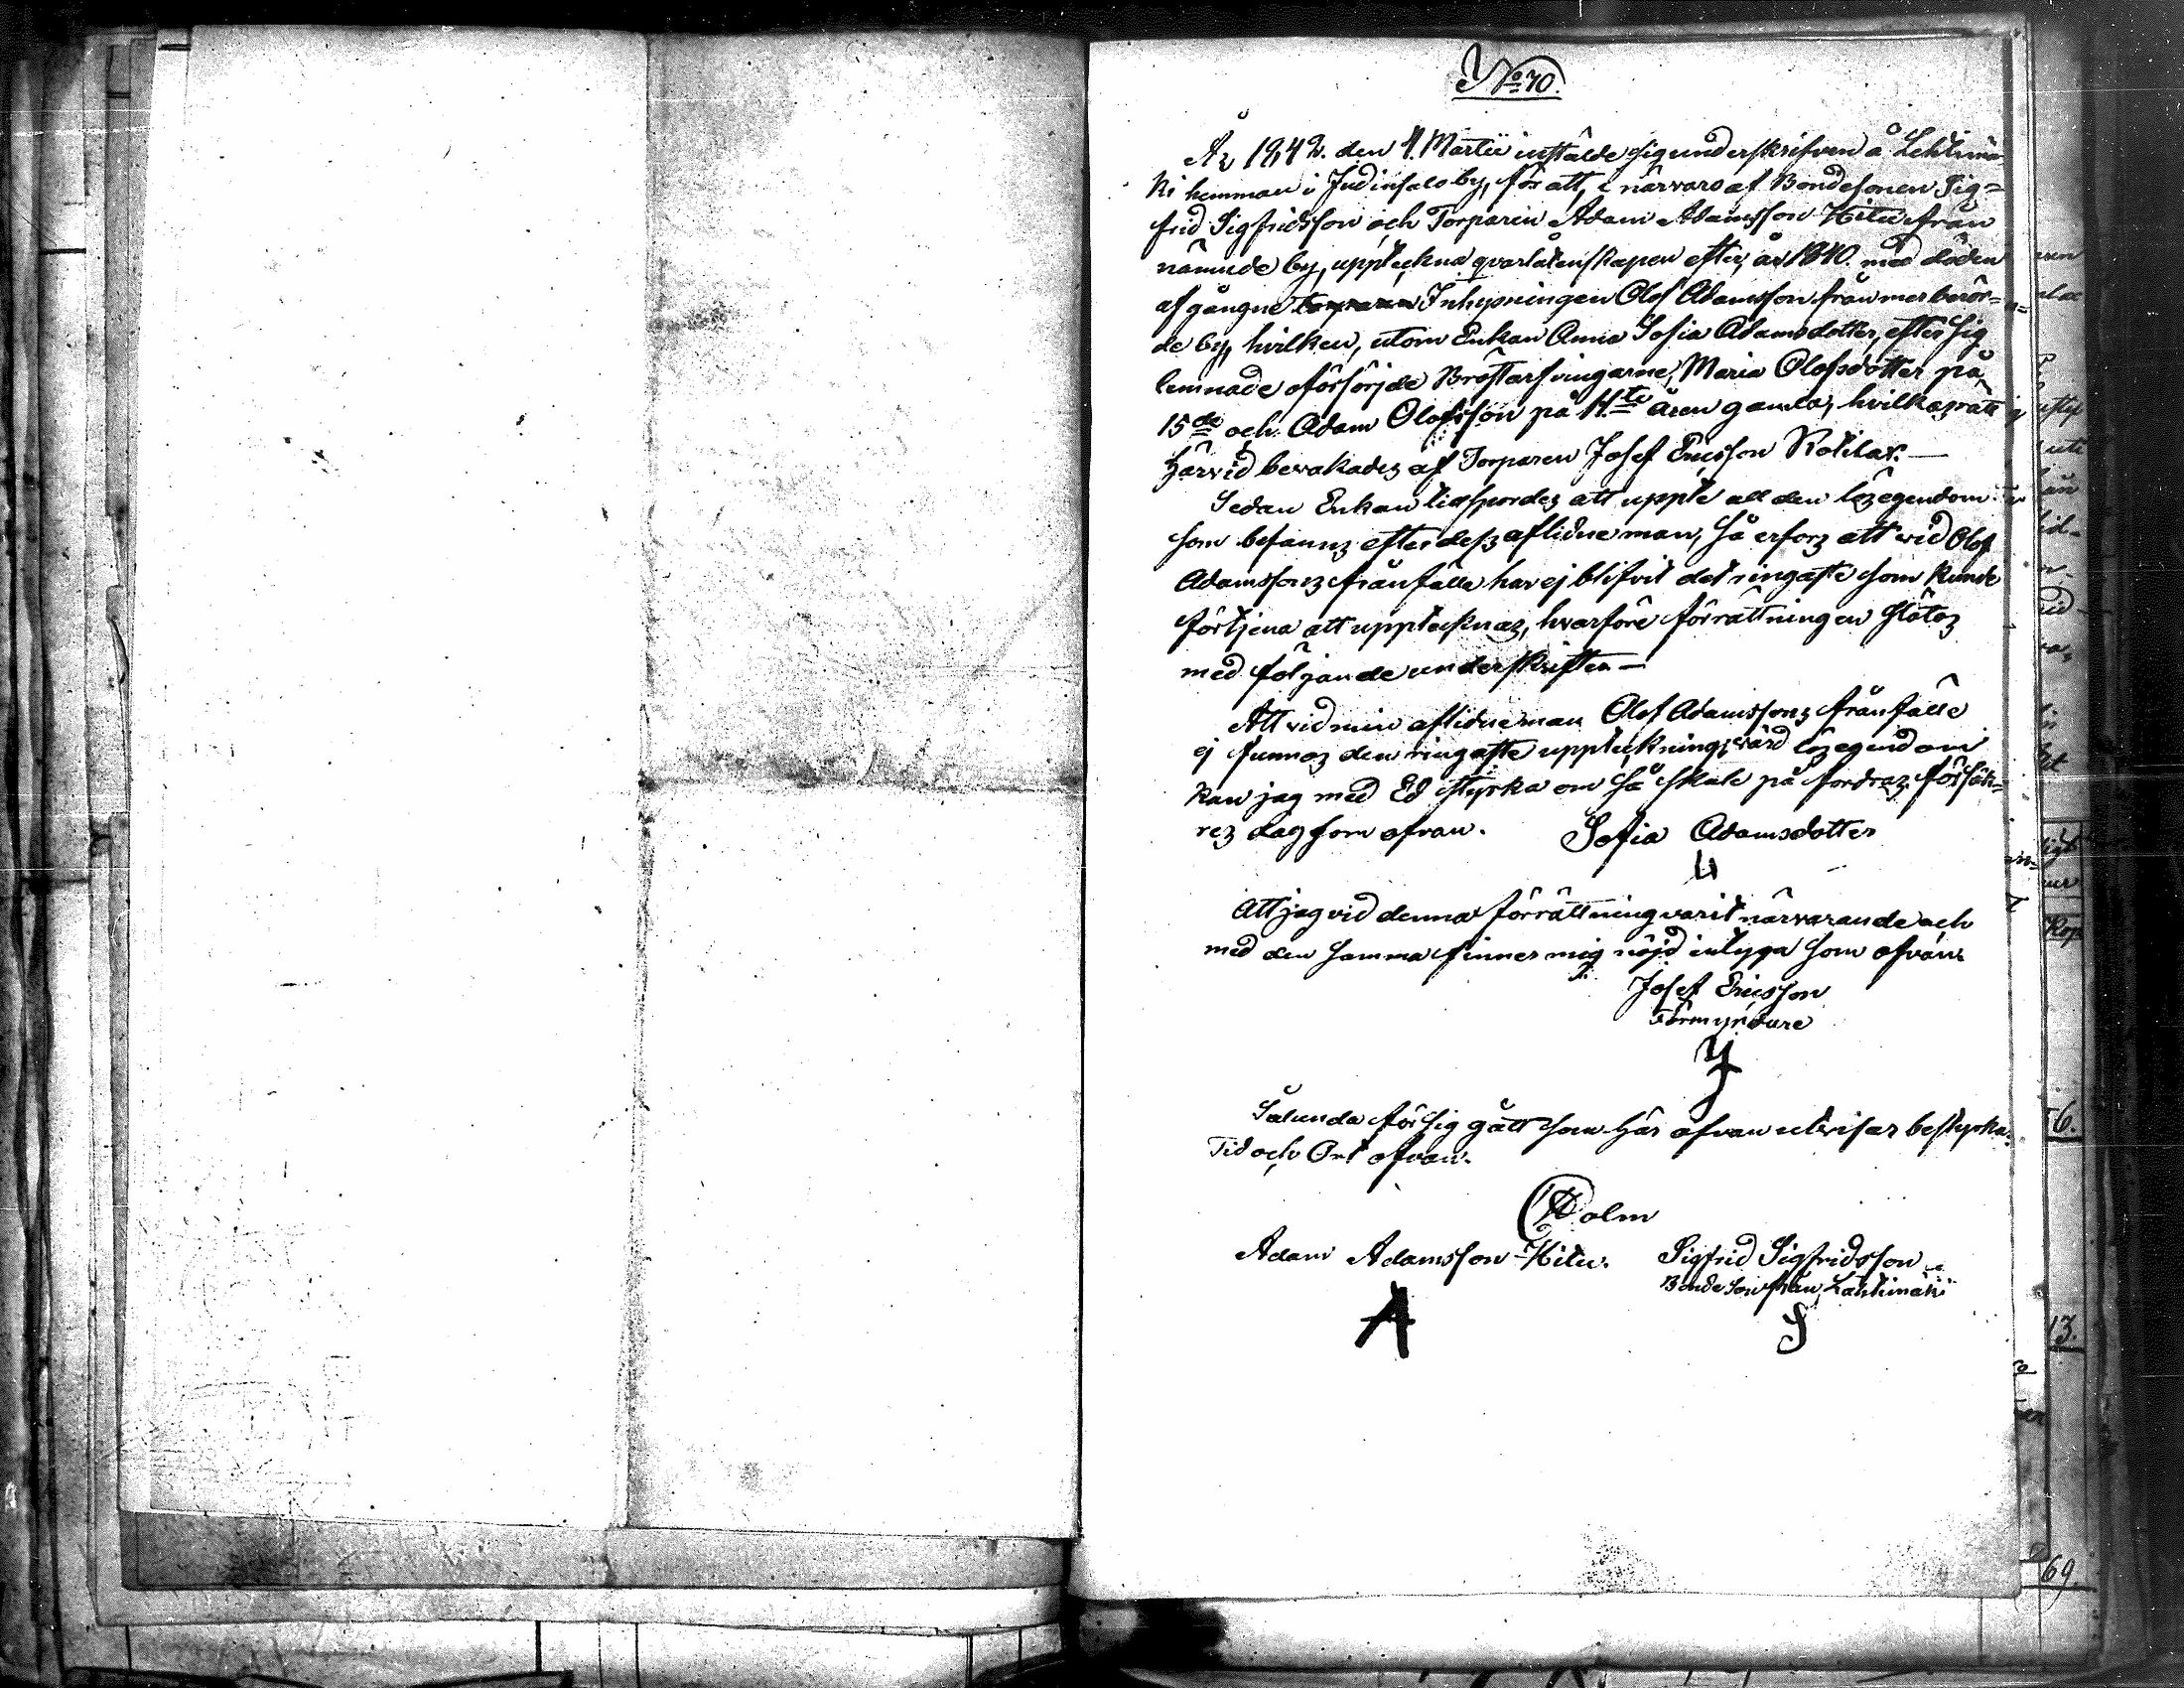 No 70.
År 1842. den 4. Martii instälde sig underskrifven å Lehtimä
ki hemman i Judinsalo by, för att, i närvaro af Bondesonen Sig=
frid Sigfridsson och Torparen Adam Adamsson Hitu från
nämnde by, uppteckna qvarlåtenskapen efter, år 1840 med döden
afgångne Inhysningen Olof Adamsson från merberör=
de by, hvilken, utom Enkan Anna Sofia Adamsdotter, efter sig
lemnade oförsörjde Bröstarfvingarne, Maria Olofsdotter på
15de och Adam Olofsson på 11te åren gamla, hvilkas rätt
härvid bevakades af Torparen Josef Ericsson
Sedan Enkan tillspordes att uppte all den lösegendom
som befanns efter dess aflidne man, så erfors att vid Olof
Adamssons frånfälle har ej blifvit det ringaste som kunde
förtjena att upptecknas, hvarföre förrättningen slötos
med följande underskrifter —
Att vid min aflidne man Olof Adamssons frånfälle
ej funnos den ringaste uppteckning värd lösegendom
kan jag med Ed styrka om så skule på fordras försäk=
res dag som ofvan. Sofia Adamsdotter
Att jag vid denna förrättning varit närvarande och
med den samma finner mig nöjd intyga som ofvan
Josef Ericsson
Förmyndare
Sålunda försig gått som här ofvan utvisas bestyrka.
Tid och Ort ofvan.
Holm
Adam Adamsson Hitu. Sigfrid Sigfridsson
Bonde Son från Lähtimäki
A S
6.
13.
69.